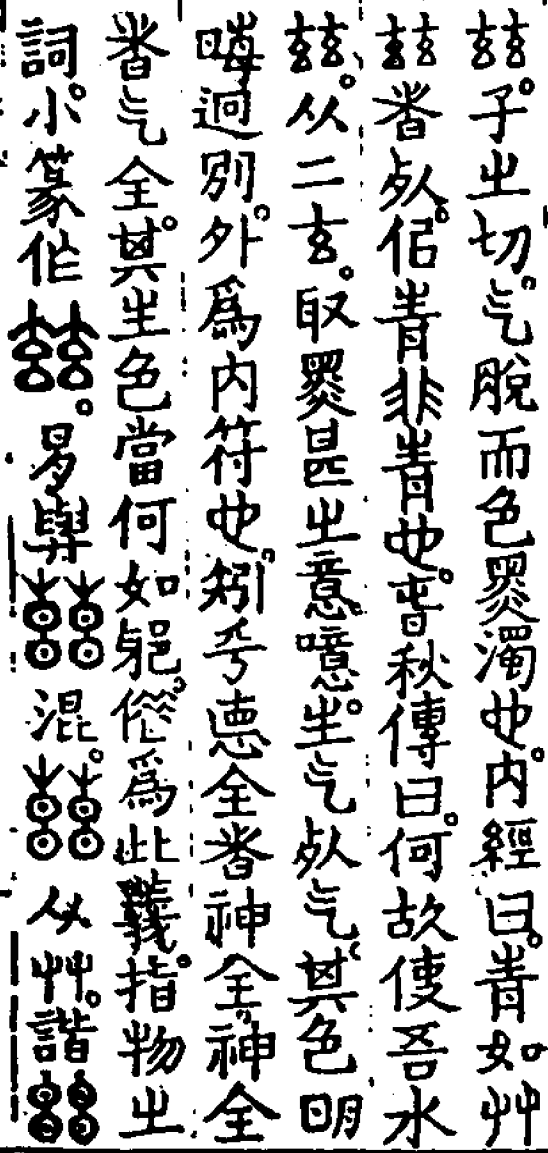 玆子㞢切。气脫而色黑濁也。内經曰。青如艸
玆者死。佀青非青也。旾秋傳曰。何故使吾水
玆。从二玄。取黑甚㞢意。噫。生气死气。其色明
晦迥別。外爲内符也。矧乎悳全者神全。神全
者气全。其生色當何如爲此義。指物㞢
詞。小篆作玆。易與混。从艸。諧